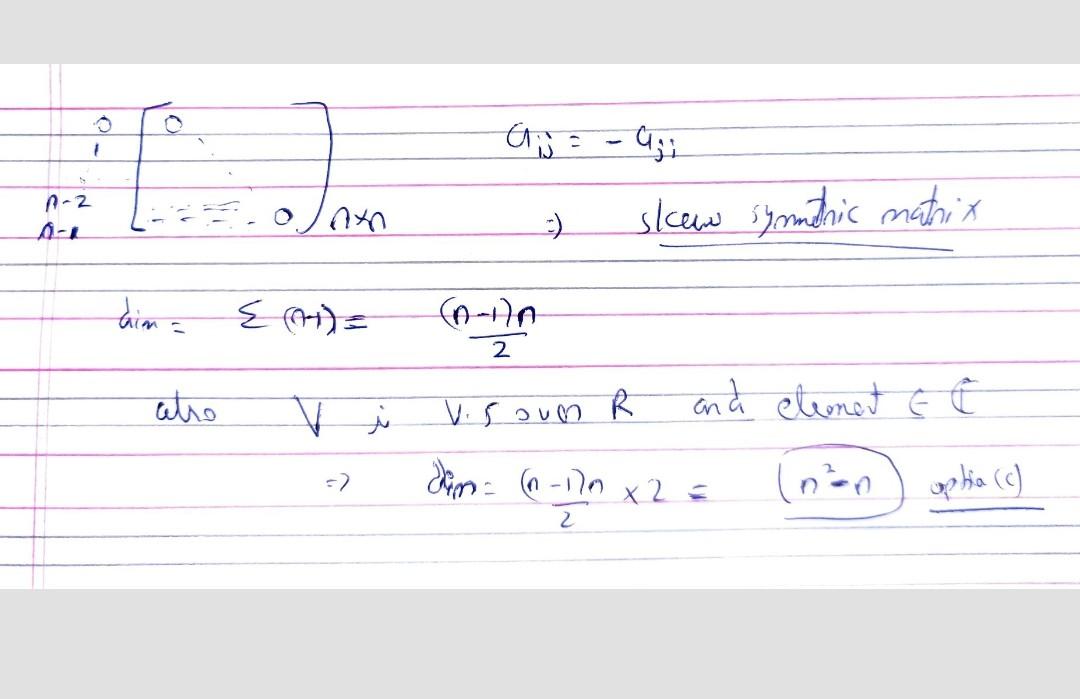 0 [ 0
1
n-2
n-1 - - - = = = - 0 ] n×n
aij = - aji
=) skew symmthic matrix
dim = Σ (n-1) = (n-1)n / 2
also V is V.S over R and element ∈ ℂ
=> dim = (n-1)n / 2 × 2 = (n²-n) option (c)